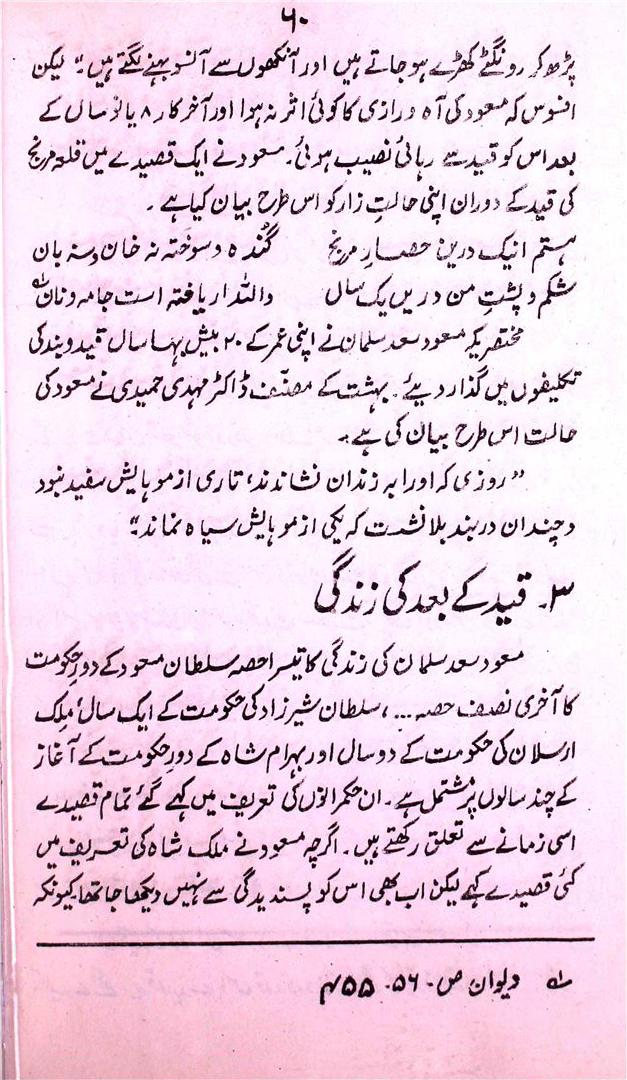 ۶۰
پڑھ کر رونگٹے کھڑے ہو جاتے ہیں اور آنکھوں سے آنسو بہنے لگتے ہیں۔" لیکن
افسوس کہ مسعود کی آہ و زاری کا کوئی اثر نہ ہوا اور آخر کار ۸ یا نو سال کے
بعد اس کو قید سے رہائی نصیب ہوئی۔ مسعود نے ایک قصیدے میں قلعہ مرنج
کی قید کے دوران اپنی حالتِ زار کو اس طرح بیان کیا ہے۔
ہستم اینک درین حصارِ مرنج گُندہ و سوختہ نہ خان و نہ بان
شکم و پشتِ من دریں یک سال واللہ ار یافتہ است جامہ و نان ؎۱
مختصر یہ کہ مسعود سعد سلمان نے اپنی عمر کے ۲۰ بیش بہا سال قید و بند کی
تکلیفوں میں گذار دیئے۔ بہشت کے مصنّف ڈاکٹر مہدی حمیدی نے مسعود کی
حالت اس طرح بیان کی ہے۔
"روزی کہ او را بہ زندان نشاندند، تاری از موہایش سفید نبود
و چندان در بند بلا نشست کہ یکی از موہایش سیاہ نماند۔"
۳۔ قید کے بعد کی زندگی
مسعود سعد سلمان کی زندگی کا تیسرا حصہ سلطان مسعود کے دورِ حکومت
کا آخری نصف حصہ ...، سلطان شیرزاد کی حکومت کے ایک سال، ملِک
ارسلان کی حکومت کے دو سال اور بہرام شاہ کے دورِ حکومت کے آغاز
کے چند سالوں پر مشتمل ہے۔ ان حکمرانوں کی تعریف میں کہے گئے تمام قصیدے
اسی زمانے سے تعلق رکھتے ہیں۔ اگرچہ مسعود نے ملک شاہ کی تعریف میں
کئی قصیدے کہے لیکن اب بھی اس کو پسندیدگی سے نہیں دیکھا جاتا تھا، کیونکہ
؎۱ دیوان ص۔ ۵۶۔ ۴۵۵